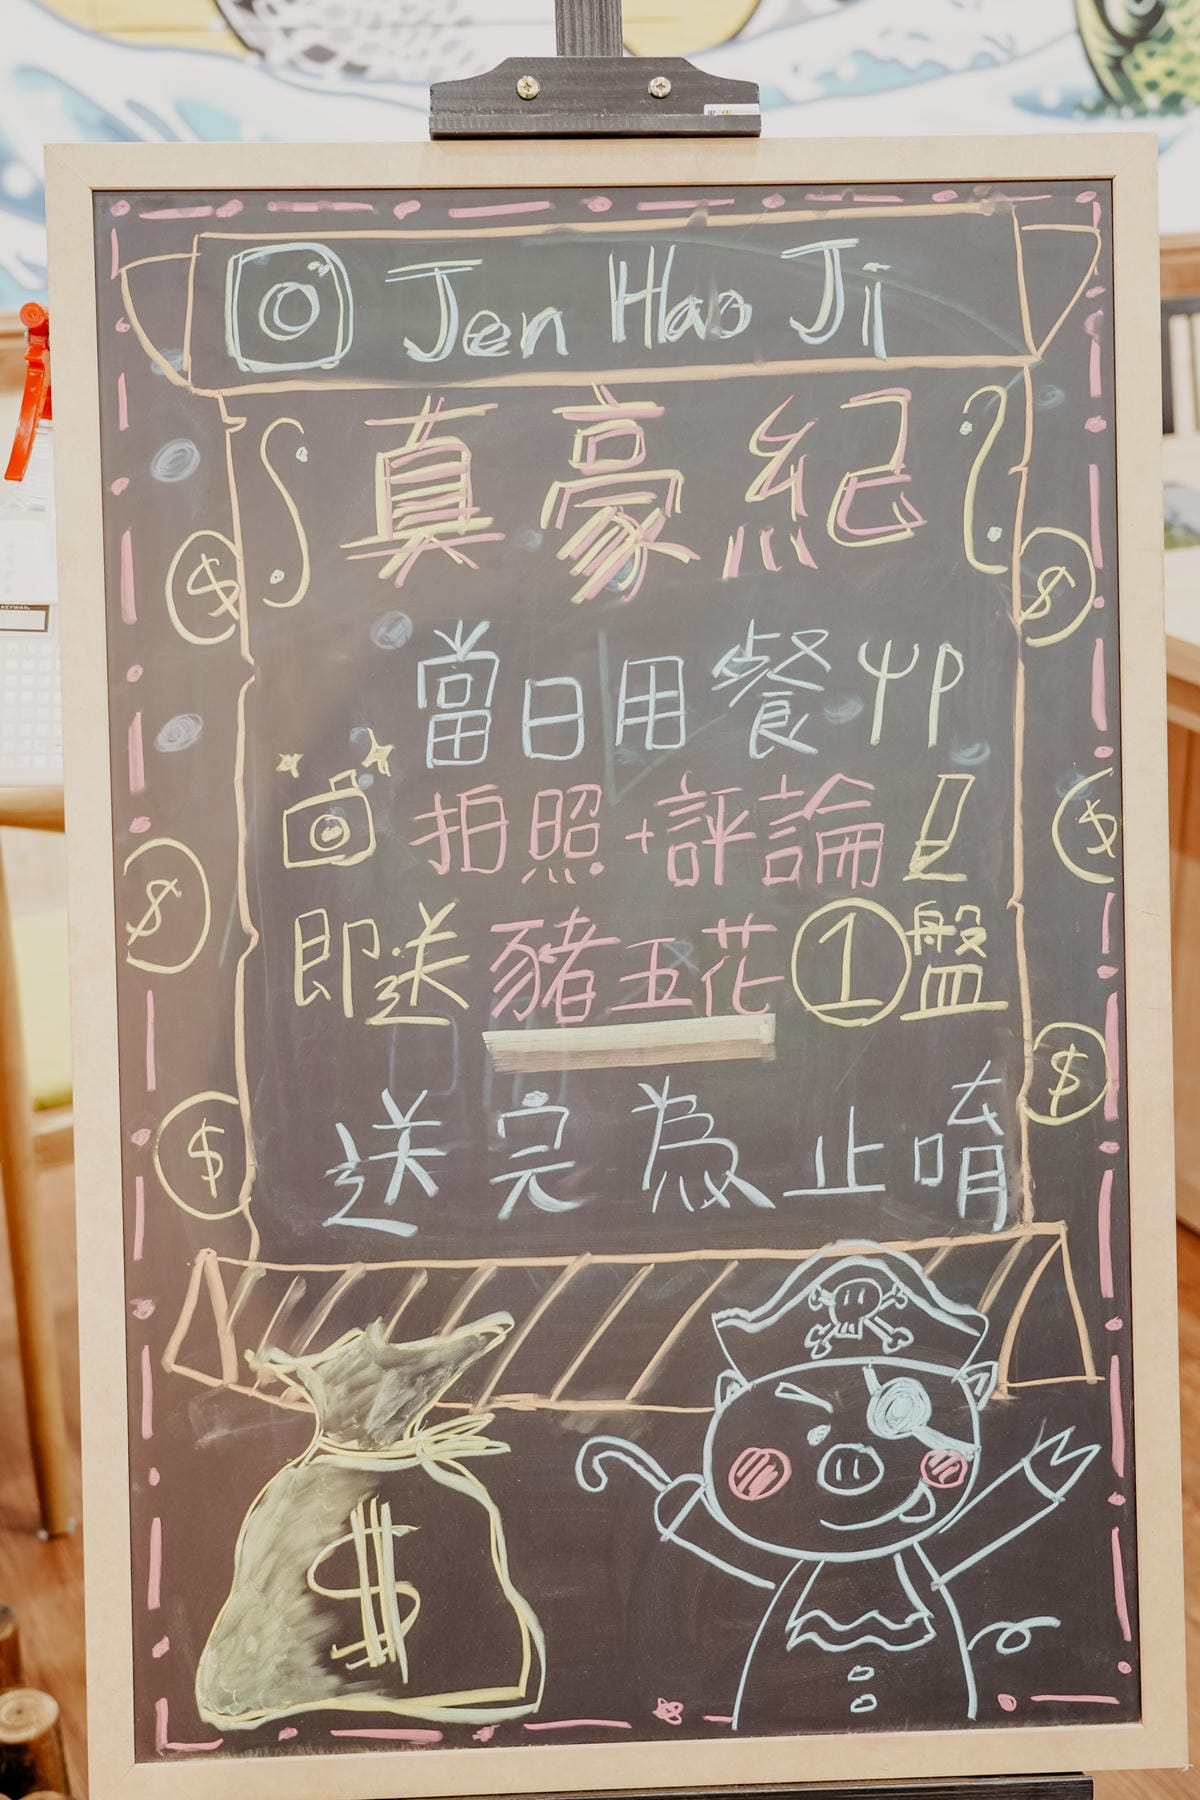 Jen Hao Ji
真豪紀
當日用餐
拍照+評論
即送豬五花①盤
送完為止唷
$
$
$
$
$
$
$